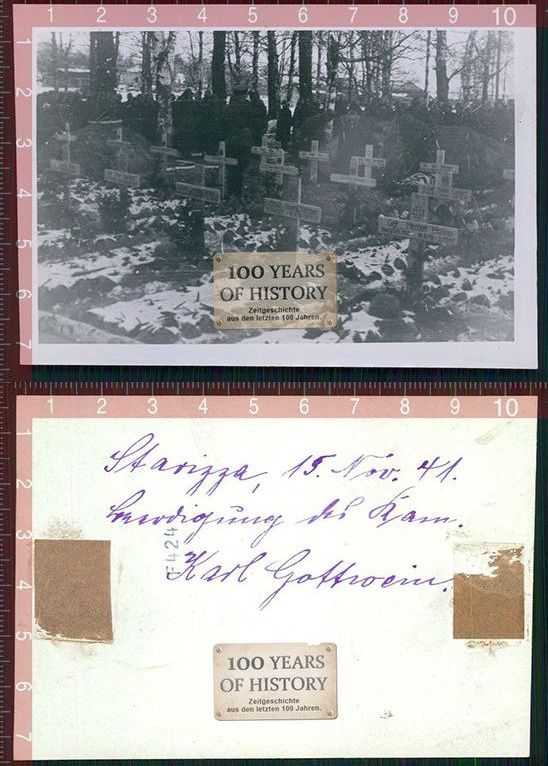 1 2 3 4 5 6 7 8 9 10
1
2
3
4
5
6
7
100 YEARS
OF HISTORY
Zeitgeschichte
aus den letzten 100 Jahren.
1 2 3 4 5 6 7 8 9 10
1
2
3
4
5
6
7
Starizza, 15. Nov. 41.
Beerdigung des Kam.
Karl Gottwein.
F424
100 YEARS
OF HISTORY
Zeitgeschichte
aus den letzten 100 Jahren.